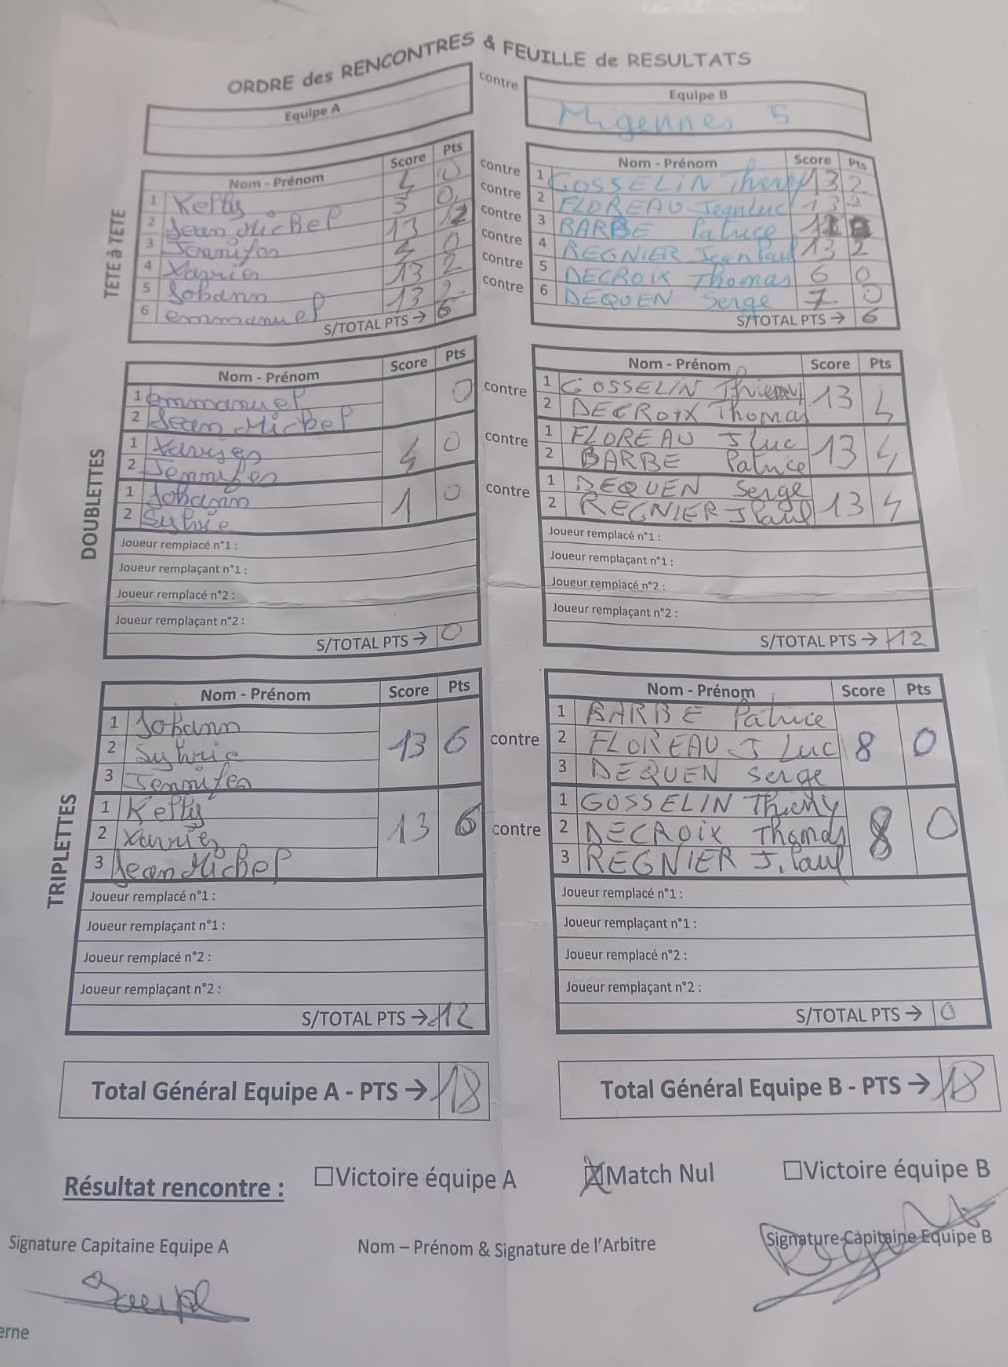 ORDRE des RENCONTRES & FEUILLE de RESULTATS
Equipe A
contre
Equipe B
Migennes 5
TETE à TETE
Nom - Prénom Score Pts contre Nom - Prénom Score Pts
1 Kelly 0 contre 1 GOSSELIN Thierry 13 2
2 Jean Michel 0 contre 2 FLOREAU JeanLuc 13 2
3 Jennifer 13 2 contre 3 BARBE Patrice
4 Xavier 0 contre 4 REGNIER JeanPaul 13 2
5 Johann 13 2 contre 5 DECROIX Thomas 6 0
6 emmanuel 13 2 contre 6 DEQUEN Serge 7 0
S/TOTAL PTS → 6 S/TOTAL PTS → 6
DOUBLETTES
Nom - Prénom Score Pts Nom - Prénom Score Pts
1 emmanuel 0 contre 1 GOSSELIN Thierry 13 4
2 Jean Michel 2 DECROIX Thomas
1 Xavier 4 0 contre 1 FLOREAU J Luc 13 4
2 Jennifer 2 BARBE Patrice
1 Johann 1 0 contre 1 DEQUEN Serge 13 4
2 Sylvie 2 REGNIER J Paul
Joueur remplacé n°1 : Joueur remplacé n°1 :
Joueur remplaçant n°1 : Joueur remplaçant n°1 :
Joueur remplacé n°2 : Joueur remplacé n°2 :
Joueur remplaçant n°2 : Joueur remplaçant n°2 :
S/TOTAL PTS → 0 S/TOTAL PTS → 12
TRIPLETTES
Nom - Prénom Score Pts Nom - Prénom Score Pts
1 Johann 1 BARBE Patrice
2 Sylvie 13 6 contre 2 FLOREAU J Luc 8 0
3 Jennifer 3 DEQUEN Serge
1 Kelly 1 GOSSELIN Thierry
2 Xavier 13 6 contre 2 DECROIX Thomas 8 0
3 Jean Michel 3 REGNIER J.Paul
Joueur remplacé n°1 : Joueur remplacé n°1 :
Joueur remplaçant n°1 : Joueur remplaçant n°1 :
Joueur remplacé n°2 : Joueur remplacé n°2 :
Joueur remplaçant n°2 : Joueur remplaçant n°2 :
S/TOTAL PTS → 12 S/TOTAL PTS → 0
Total Général Equipe A - PTS → 18 Total Général Equipe B - PTS → 18
Résultat rencontre : Victoire équipe A Match Nul Victoire équipe B
Signature Capitaine Equipe A Nom – Prénom & Signature de l'Arbitre Signature Capitaine Equipe B
erne